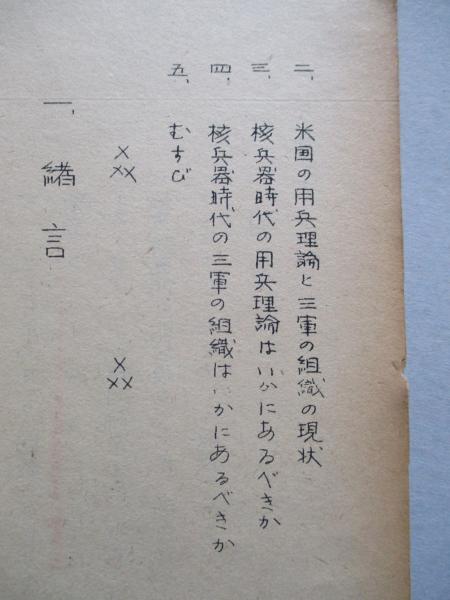 二、米国の用兵理論と三軍の組織の現状
三、核兵器時代の用兵理論はいかにあるべきか
四、核兵器時代の三軍の組織はいかにあるべきか
五、むすび
× ××　× ××
一、緒言